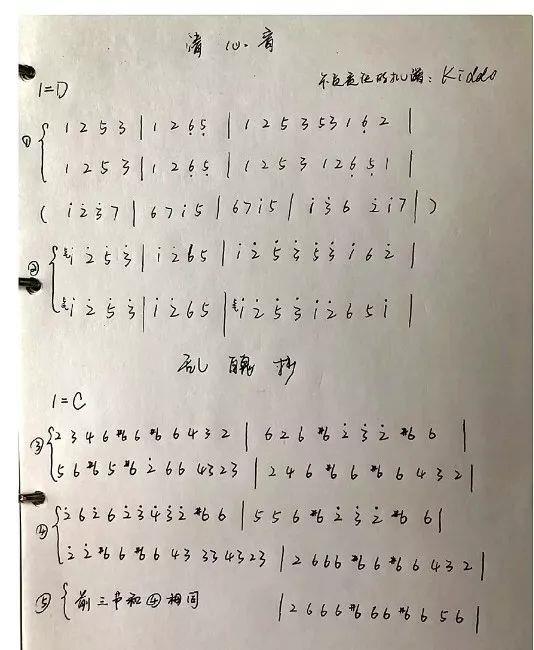 清心音
不负责任的扒谱：Kiddo
1=D
① 1 2 5 3 | 1 2 6̣ 5̣ | 1 2 5 3 5 3 1 6̣ 2 |
1 2 5 3 | 1 2 6̣ 5̣ | 1 2 5 3 1 2 6̣ 5̣ 1 |
( i̇ 2̇ 3̇ 7 | 6 7 i̇ 5 | 6 7 i̇ 5 | i̇ 3̇ 6 2̇ i̇ 7 | )
② i̇ 2̇ 5̇ 3̇ | i̇ 2̇ 6 5 | i̇ 2̇ 5̇ 3̇ 5̇ 3̇ i̇ 6 2̇ |
i̇ 2̇ 5̇ 3̇ | i̇ 2̇ 6 5 | i̇ 2̇ 5̇ 3̇ i̇ 2̇ 6 5 i̇ |
乱魄抄
1=C
③ 2 3 4 6 #6 6 #6 6 4 3 2 | 6 2̇ 6 #6 2̇ 3̇ 2̇ #6 6 |
5 6 #6 5 #6 2̇ 6 6 4 3 2 3 | 2 4 6 #6 6 #6 6 4 3 2 |
④ 2̇ 6 2̇ 6 2̇ 3̇ 4̇ 3̇ 2̇ #6 6 | 5 5 6 #6 2̇ 3̇ 2̇ #6 6 |
2̇ 2̇ #6 6 #6 6 4 3 3 3 4 3 2 3 | 2 6 6 6 #6 6 #6 6 4 3 2 |
⑤ 前三节和④相同 | 2 6 6 6 #6 6 6 #6 6 5 6 |